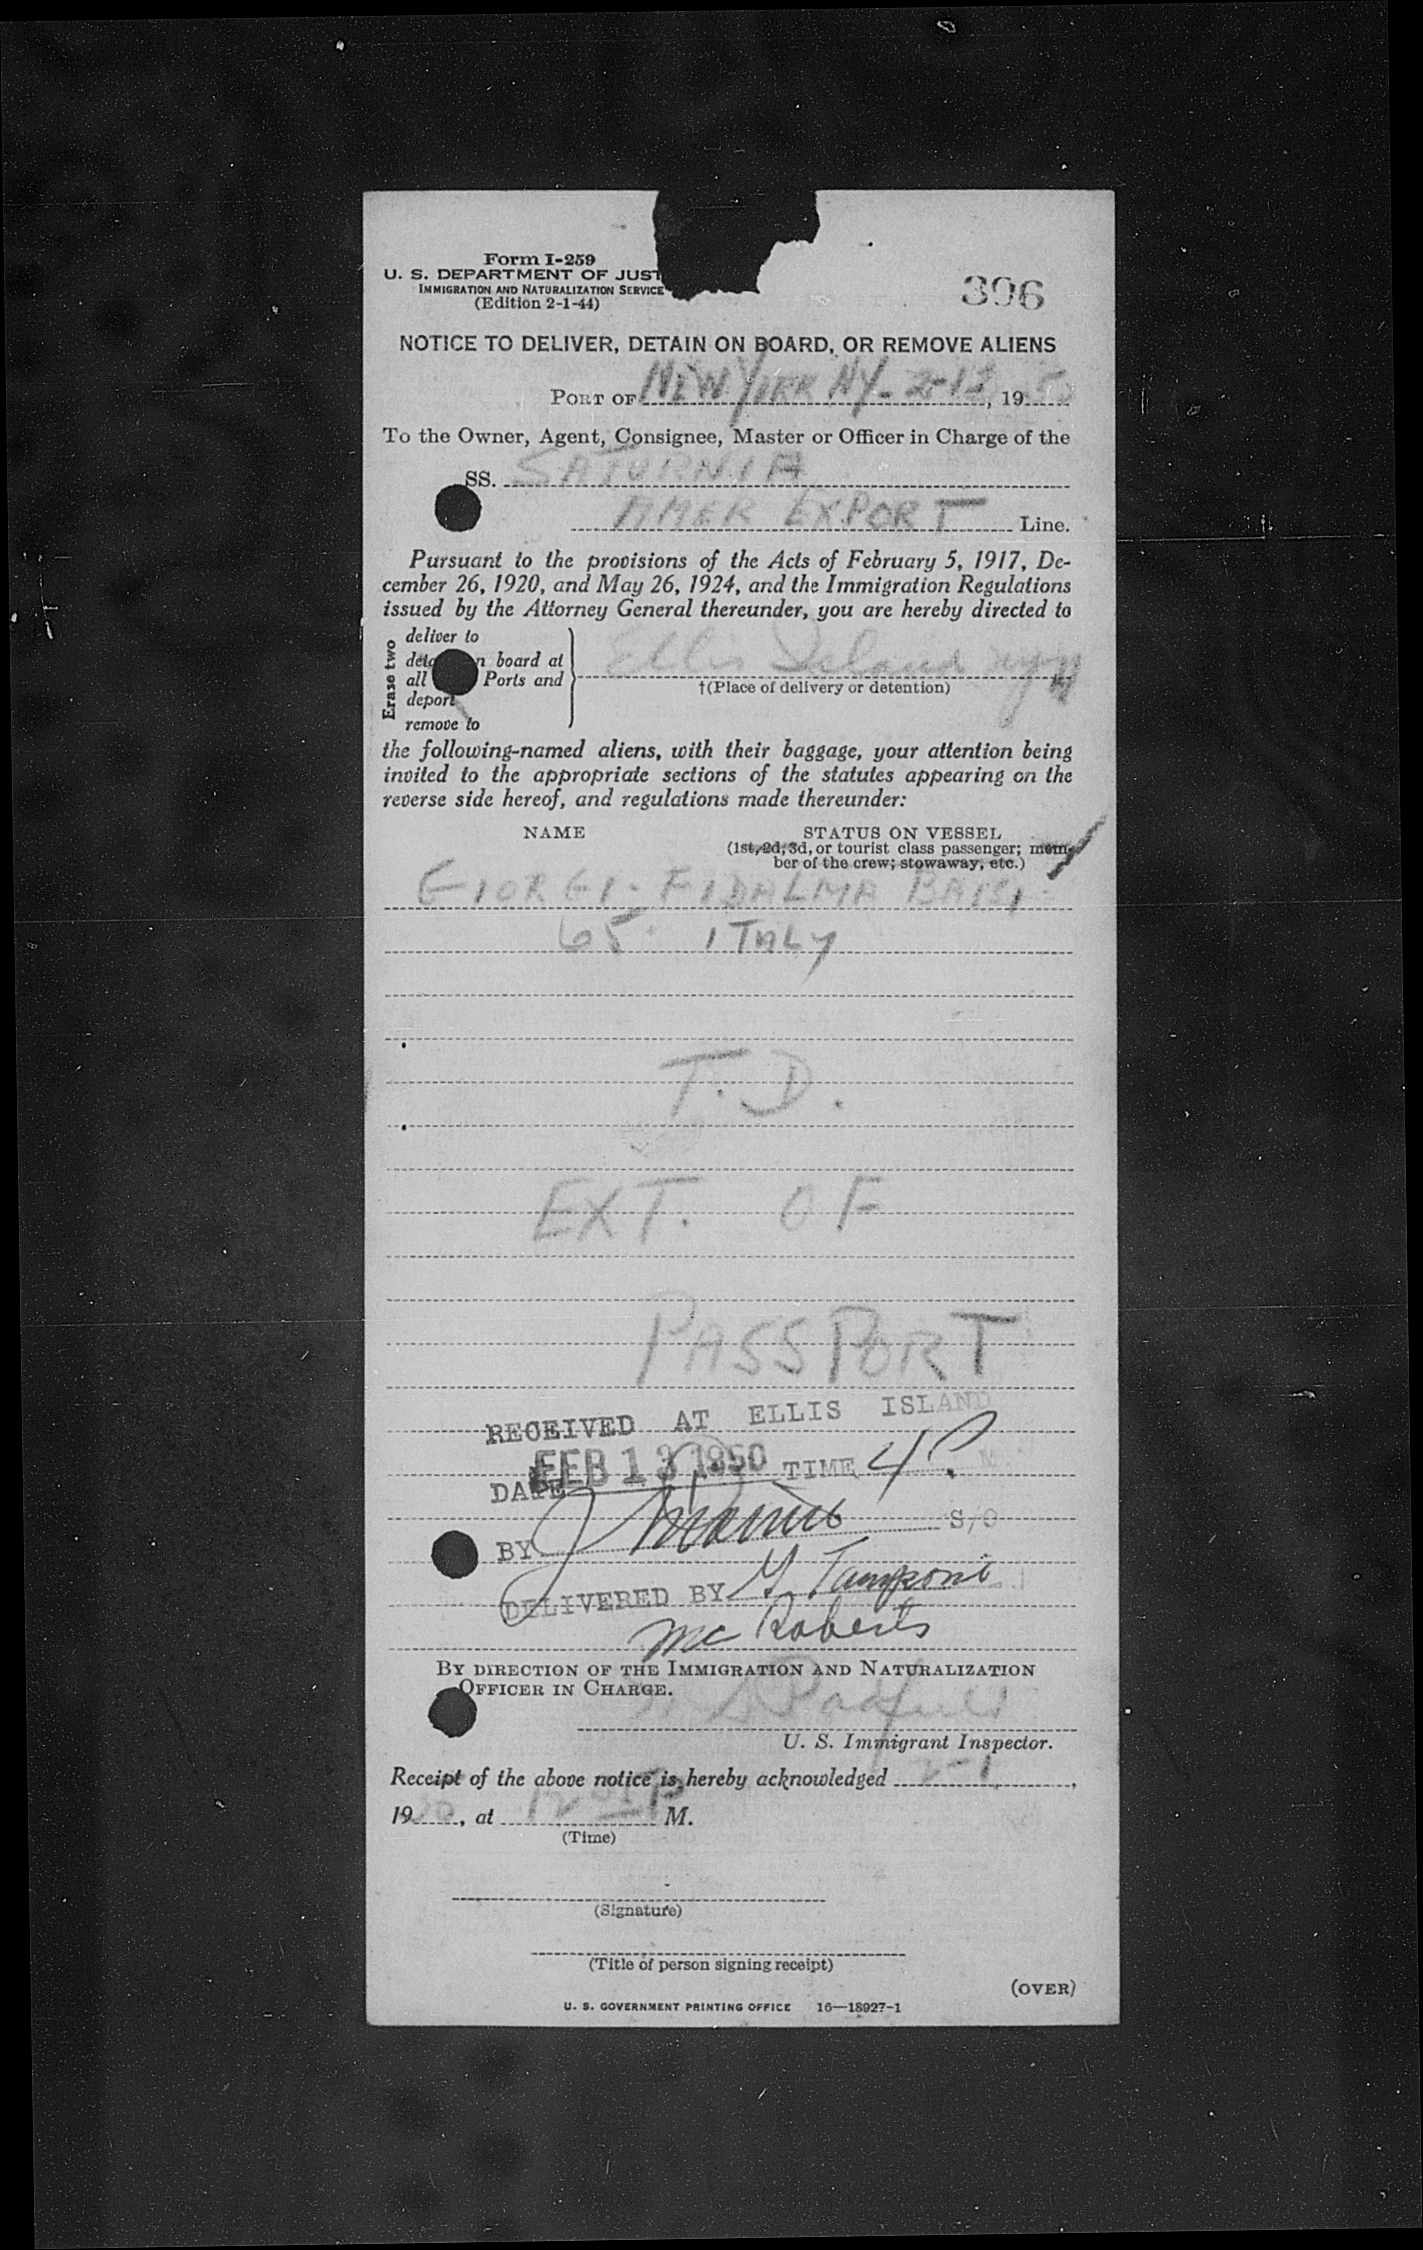 Form I-259
U. S. DEPARTMENT OF JUST
IMMIGRATION AND NATURALIZATION SERVICE
(Edition 2-1-44)
396
NOTICE TO DELIVER, DETAIN ON BOARD, OR REMOVE ALIENS
PORT OF NEW YORK NY- 2-13, 1950
To the Owner, Agent, Consignee, Master or Officer in Charge of the
SS. SATURNIA
AMER EXPORT Line.
Pursuant to the provisions of the Acts of February 5, 1917, De-
cember 26, 1920, and May 26, 1924, and the Immigration Regulations
issued by the Attorney General thereunder, you are hereby directed to
Erase two
deliver to
board at
all Ports and
deport
remove to
Ellis Island NYH
†(Place of delivery or detention)
the following-named aliens, with their baggage, your attention being
invited to the appropriate sections of the statutes appearing on the
reverse side hereof, and regulations made thereunder:
NAME STATUS ON VESSEL
(1st, 2d, 3d, or tourist class passenger; mem-
ber of the crew; stowaway, etc.)
GIORGI- FIDALMA BAISI-
65- ITALY
T.D.
EXT. OF
PASSPORT
RECEIVED AT ELLIS ISLAND
DATE FEB 13 1950 TIME 4 P. M
BY S/O
DELIVERED BY G Tamponi
McRoberts
BY DIRECTION OF THE IMMIGRATION AND NATURALIZATION
OFFICER IN CHARGE.
U. S. Immigrant Inspector.
Receipt of the above notice is hereby acknowledged
1950, at 12 P M.
(Time)
(Signature)
(Title of person signing receipt)
(OVER)
U. S. GOVERNMENT PRINTING OFFICE 16—18927-1